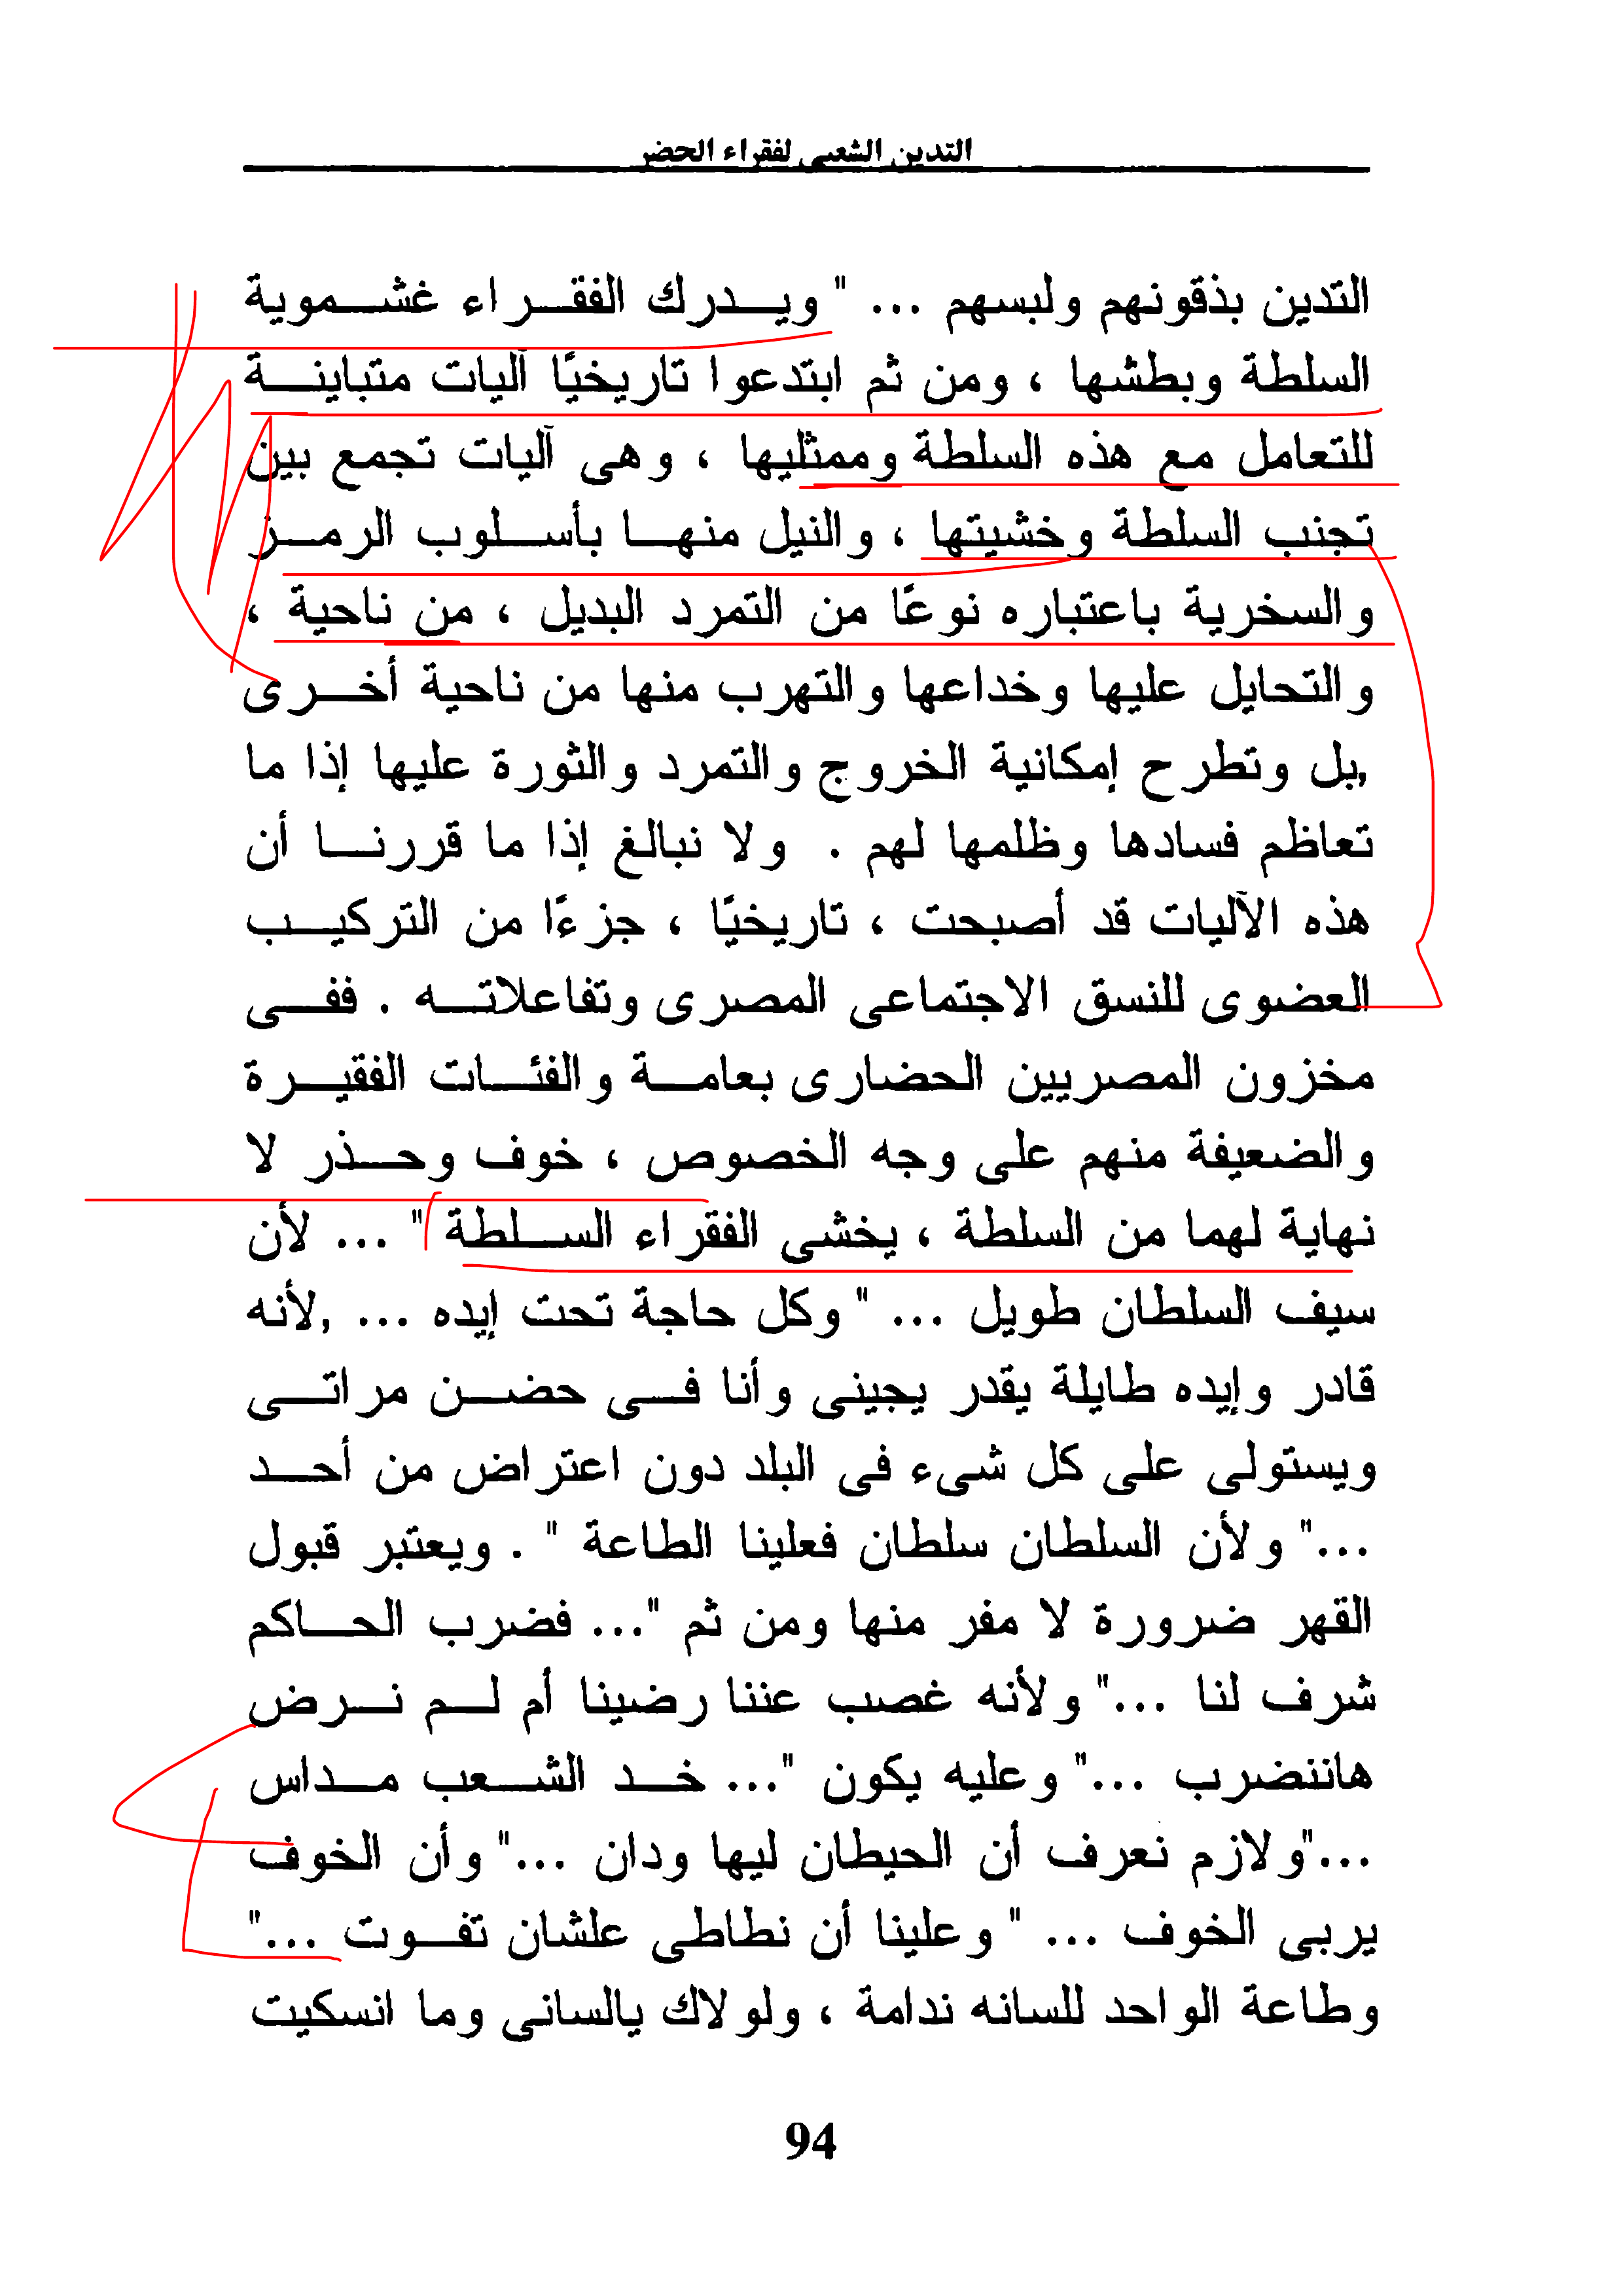 التدين الشعبى لفقراء الحضر
التدين بذقونهم ولبسهم ... " ويدرك الفقراء غشموية
السلطة وبطشها ، ومن ثم ابتدعوا تاريخيًا آليات متباينة
للتعامل مع هذه السلطة وممثليها ، وهى آليات تجمع بين
تجنب السلطة وخشيتها ، والنيل منها بأسلوب الرمز
والسخرية باعتباره نوعًا من التمرد البديل ، من ناحية ،
والتحايل عليها وخداعها والتهرب منها من ناحية أخرى
,بل وتطرح إمكانية الخروج والتمرد والثورة عليها إذا ما
تعاظم فسادها وظلمها لهم . ولا نبالغ إذا ما قررنا أن
هذه الآليات قد أصبحت ، تاريخيًا ، جزءًا من التركيب
العضوى للنسق الاجتماعى المصرى وتفاعلاته . ففى
مخزون المصريين الحضارى بعامة والفئات الفقيرة
والضعيفة منهم على وجه الخصوص ، خوف وحذر لا
نهاية لهما من السلطة ، يخشى الفقراء السلطة " ... لأن
سيف السلطان طويل ... " وكل حاجة تحت إيده ... ,لأنه
قادر وإيده طايلة يقدر يجينى وأنا فى حضن مراتى
ويستولى على كل شىء فى البلد دون اعتراض من أحد
..." ولأن السلطان سلطان فعلينا الطاعة " . ويعتبر قبول
القهر ضرورة لا مفر منها ومن ثم "... فضرب الحاكم
شرف لنا ..." ولأنه غصب عننا رضينا أم لم نرض
هاننضرب ..." وعليه يكون "... خد الشعب مداس
..."ولازم نعرف أن الحيطان ليها ودان ..." وأن الخوف
يربى الخوف ... " وعلينا أن نطاطى علشان تفوت ..."
وطاعة الواحد للسانه ندامة ، ولولاك يالسانى وما انسكيت
94